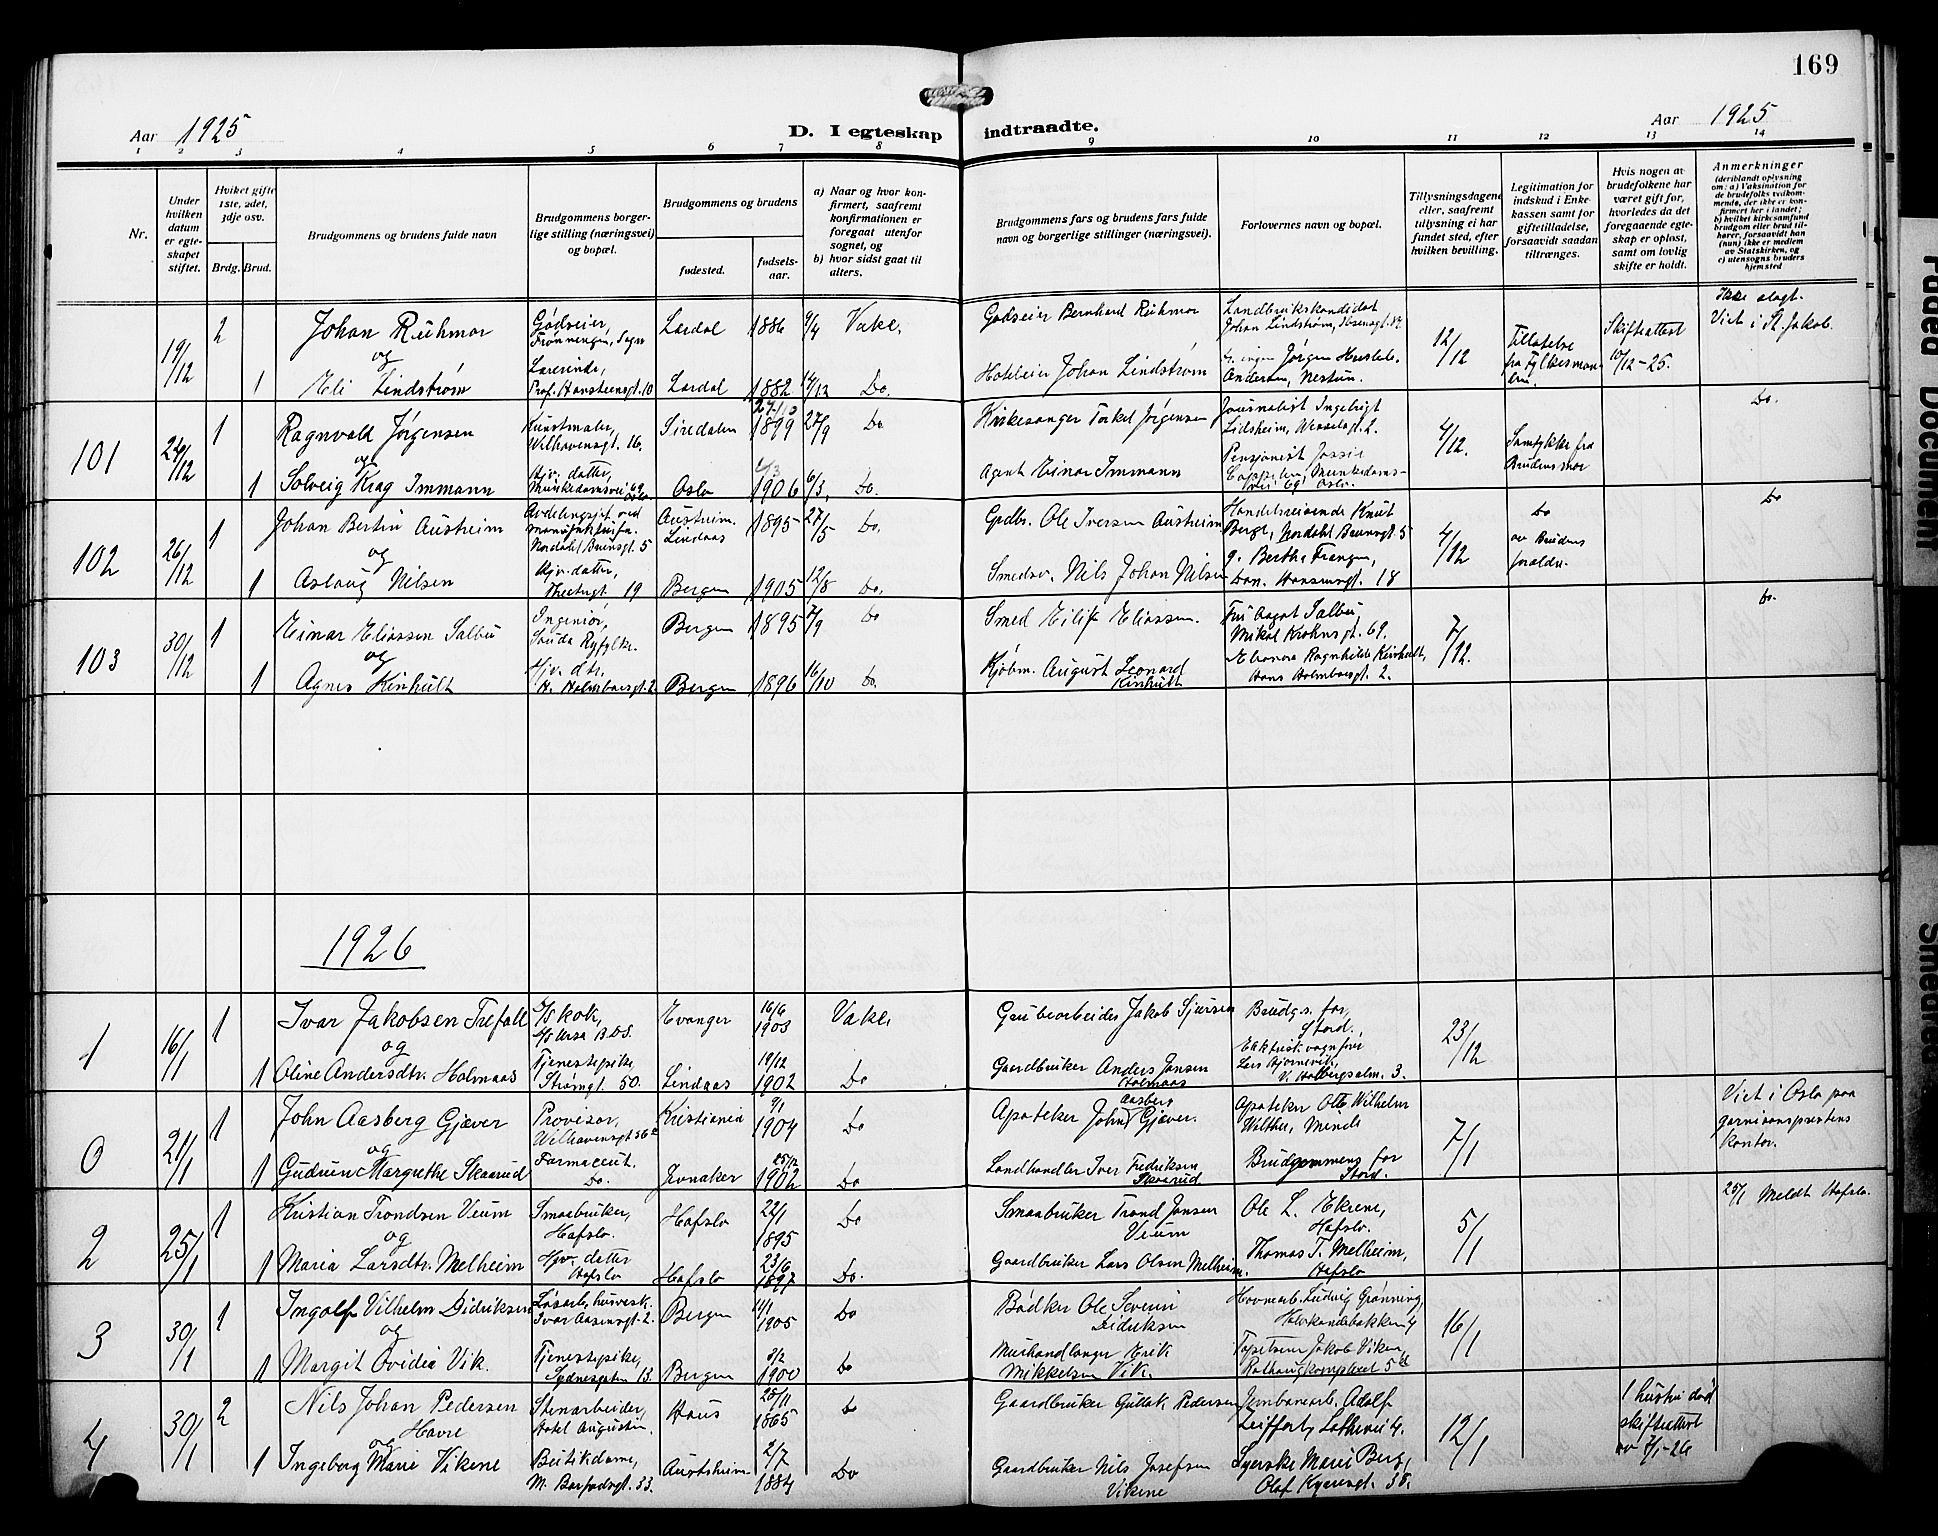 169
Aar 1925
D. I egteskap indtraadte.
Aar 1925
1 2 3 4 5 6 7 8 9 10 11 12 13 14
Nr.
Under hvilken datum er egteskapet stiftet.
Hviket gifte 1ste, 2det, 3dje osv.
Brdg. Brud.
Brudgommens og brudens fulde navn
Brudgommens borgerlige stilling (næringsvei) og bopæl.
Brudgommens og brudens
fødested.
fødselsaar.
a) Naar og hvor konfirmert, saafremt konfirmationen er foregaat utenfor sognet, og
b) hvor sidst gaat til alters.
Brudgommens fars og brudens fars fulde navn og borgerlige stillinger (næringsvei).
Forlovernes navn og bopæl.
Tillysningsdagene eller, saafremt tillysning ei har fundet sted, efter hvilken bevilling.
Legitimation for indskud i Enkekassen samt for giftetilladelse, forsaavidt saadan tiltrænges.
Hvis nogen av brudefolkene har været gift før, hvorledes da det foregaaende egteskap er opløst, samt om lovlig skifte er holdt.
Anmerkninger (deriblandt oplysning om: a) Vaksination for de brudefolks vedkommende, der ikke er konfirmert her i landet; b) hvilket kirkesamfund brudgom eller brud tilhører, forsaavidt han (hun) ikke er medlem av Statskirken, og c) utensogns bruders hjemsted
19/12 2 Johan Rühmor Godseier, Lærdal 1886 9/4 Vake. Godseier Bernhard Rühmor Landbrukskandidat Johan Lindstrøm, Ibsensgt. 12/12 Tillatelse fra Fylkesmannen. Skifteattest 10/12-25. Viet i St. Jakob.
og
1 Eli Lindstrøm Lærerinde, Prof. Hansteensgt. 10 Lærdal 1882 14/12 Do. Hoteleier Johan Lindstrøm
101 24/12 1 Ragnvald Jørgensen Kunstmaler, Welhavensgt. 16. Siredalen 1899 27/9 Do Kirkesanger Torkel Jørgensen Journalist Ingebrigt Lidsheim, Wesselsgt. 2. 4/12. Samtykke fra Brudens mor Do.
og
1 Solveig Krag Immann Hjv. datter, Munkedamsvei 69, Oslo Oslo 1906 6/3 Do. Agent Einar Immann Pensjonist Cappelen, Munkedamsvei 69, Oslo.
102 26/12 1 Johan Bertin Austheim Nordahl Brunsgt. 5 Austheim. Lindaas 1895 27/5 Do. Grdbr. Ole Iversen Austheim Handelsreisende Knut Berge, Nordahl Brunsgt. 5 4/12 Do av Brudens foreldre. Do
og
1 Aslaug Nilsen Hjv. datter, 19 Bergen 1905 12/8 Do. Smedsv. Nils Johan Nilsen Dan. Hansensgt. 18
103 30/12 1 Einar Eliassen Salbu Ingeniør, Sauda Ryfylke. Bergen 1895 7/9 Do Smed Eilif Eliassen. Fru Aagot Salbu, Mikal Krohnsgt. 69. 7/12. Do.
og
1 Agnes Kinhult Hjv. dtr. H. Holmboesgt. 2 Bergen 1896 16/10 Do. Kjøbm. August Leonard Kinhult Eleonora Ragnhilde Kinhult, Hans Holmboesgt. 2.
1926
1 16/1 1 Ivar Jakobsen Trefall kok, B.D.S. Evanger 16/6 1903 Vake. Grubearbeider Jakob Sjursen Brudgs. for, Stord. 23/12
og
1 Oline Andersdtr. Holmaas Tjenestepike, Strømgt. 50. Lindaas 19/12 1902 Do Gaardbruker Anders Jansen Holmaas Elektrisk vognfører Lars V. Holbergsalm. 3.
0 21/1 1 John Aasberg Gjæver Provisor, Welhavensgt 56 Kristiania 9/1 1904 Do Apoteker John Aasberg Gjæver. Apoteker Otto Wilhelm Walther, Minde 7/1 Viet i Oslo paa garnisonsprestens kontor.
og
1 Gudrun Margrethe Skaarud Farmaceut. Do. Jevnaker 25/12 1902 Do Landhandler Iver Fredriksen Skaarud Brudgommens for Stord.
2 25/1 1 Kristian Trondsen Veum Smaabruker, Hafslo. Hafslo 22/1 1895 Do Smaabruker Trond Jansen Veum Ole L. Ekrene, Hafslo. 5/1 25/1 Meldt Hafslo.
og
1 Maria Larsdtr. Melheim Hjv. datter Hafslo Hafslo 23/6 1897 Do. Gaardbruker Lars Olsen Melheim. Thomas T. Melheim, Hafslo
3 30/1 1 Ingolf Vilhelm Didriksen Løsarb., Ivar Aasensgt. 2. Bergen 11/1 1905 Do Bødker Ole Severin Didriksen Havnearb. Ludvig Grønning, 4 16/1
og
1 Margit Ovidia Vik. Tjenestepike, Sydnesgaten 13. Bergen 3/2 1900 Do Murhandlanger Erik Mikkelsen Vik. Tapetserer Jakob Viken,
4 30/1 2 Nils Johan Pedersen Havre Stenarbeider, Hotel Augustin. Haus 25/11 1865 Do Gaardbruker Gullak Pedersen Jernbanearb. Adolf Zeiffert, 4. 12/1 1 hustru død skifteattest av 7/1-26
og
1 Ingeborg Marie Vikene Butikdame, 33. Austrheim 2/7 1884 Do Gaardbruker Nils Josefsen Vikene Syerske Marie Berg, Olaf Kyrresgt. 38.
Faded Document
Smeared